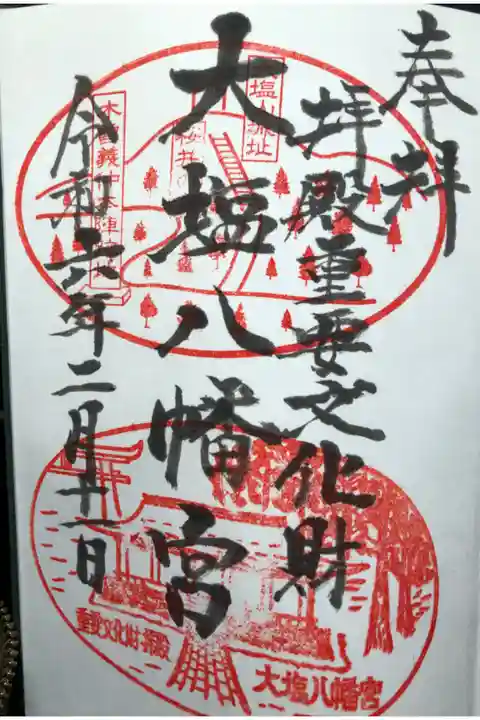 奉拝
拝殿重要文化財
大塩八幡宮
令和六年二月十一日
木曽義仲本陣
重要文化財拝殿
大塩八幡宮